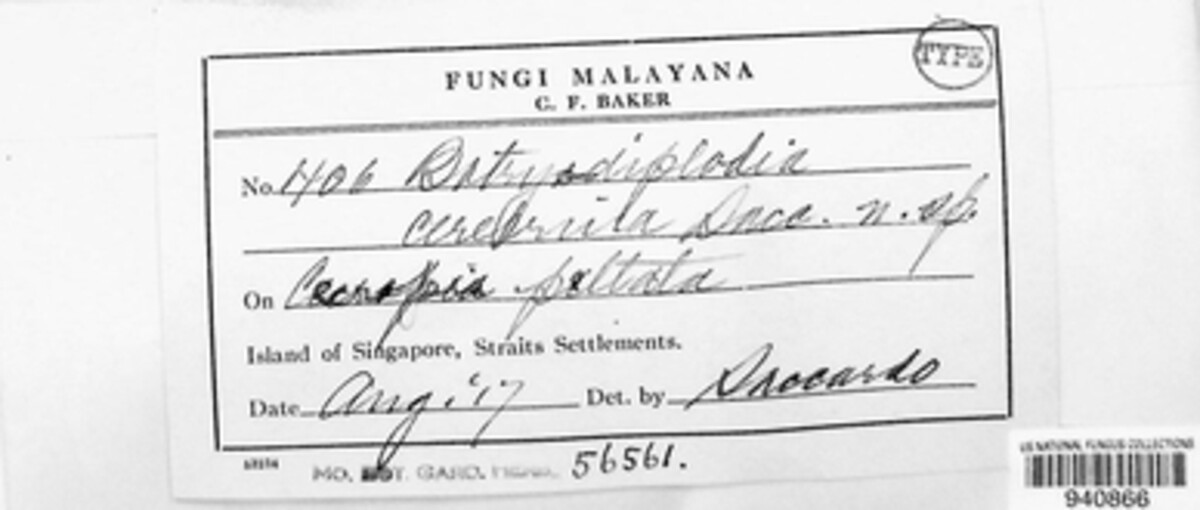 TYPE
FUNGI MALAYANA
C. F. BAKER
No. 406 Botryodiplodia
cerebrina Sacc. n. sp.
On Cecropia peltata
Island of Singapore, Straits Settlements.
Date Aug. '17 Det. by Saccardo
MO. BOT. GARD. HERB. 56561.
US NATIONAL FUNGUS COLLECTIONS
940866